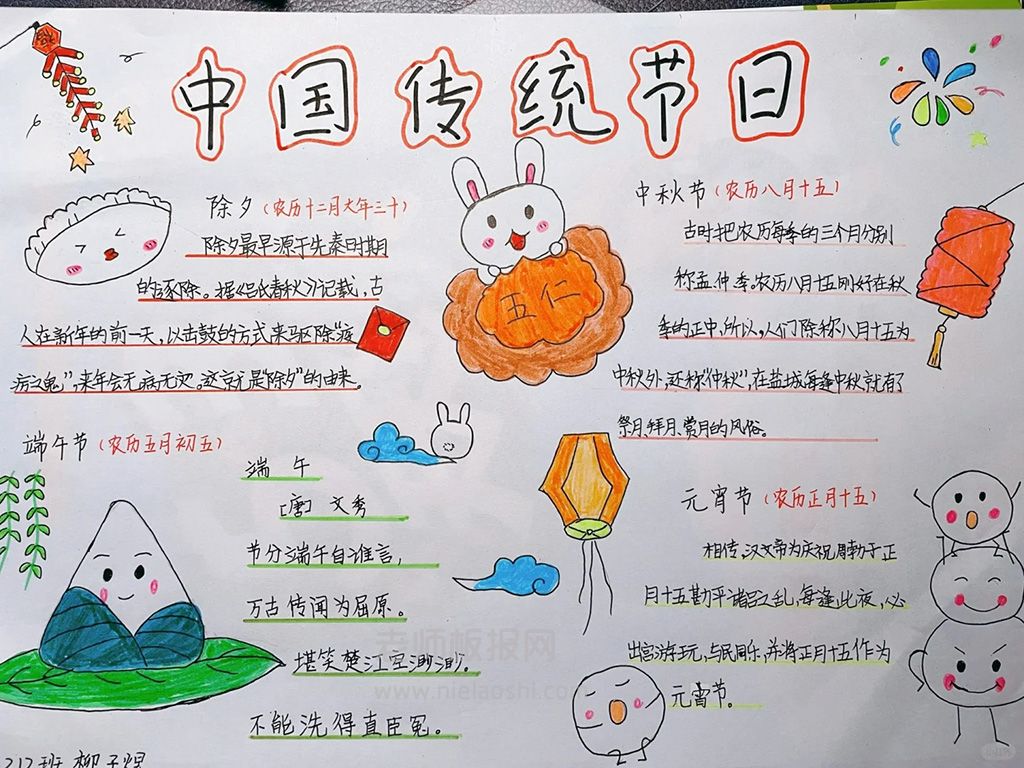 中国传统节日
除夕（农历十二月大年三十）
除夕最早源于先秦时期
的“逐除”。据《吕氏春秋》记载，古
人在新年的前一天，以击鼓的方式来驱除“疫
疠之鬼”，来年会无病无灾。这就是“除夕”的由来。
五仁
中秋节（农历八月十五）
古时把农历每季的三个月分别
称孟、仲、季。农历八月十五刚好在秋
季的正中，所以，人们除称八月十五为
中秋外，还称“仲秋”，在盐城每逢中秋就有了
祭月、拜月、赏月的风俗。
端午节（农历五月初五）
端 午
[唐] 文秀
节分端午自谁言，
万古传闻为屈原。
堪笑楚江空渺渺，
不能洗得直臣冤。
元宵节（农历正月十五）
相传，汉文帝为庆祝周勃于正
月十五勘平诸吕之乱，每逢此夜，必
出宫游玩，与民同乐，并将正月十五作为
元宵节。
212班 柳子
老师板报网
www.nielaoshi.com